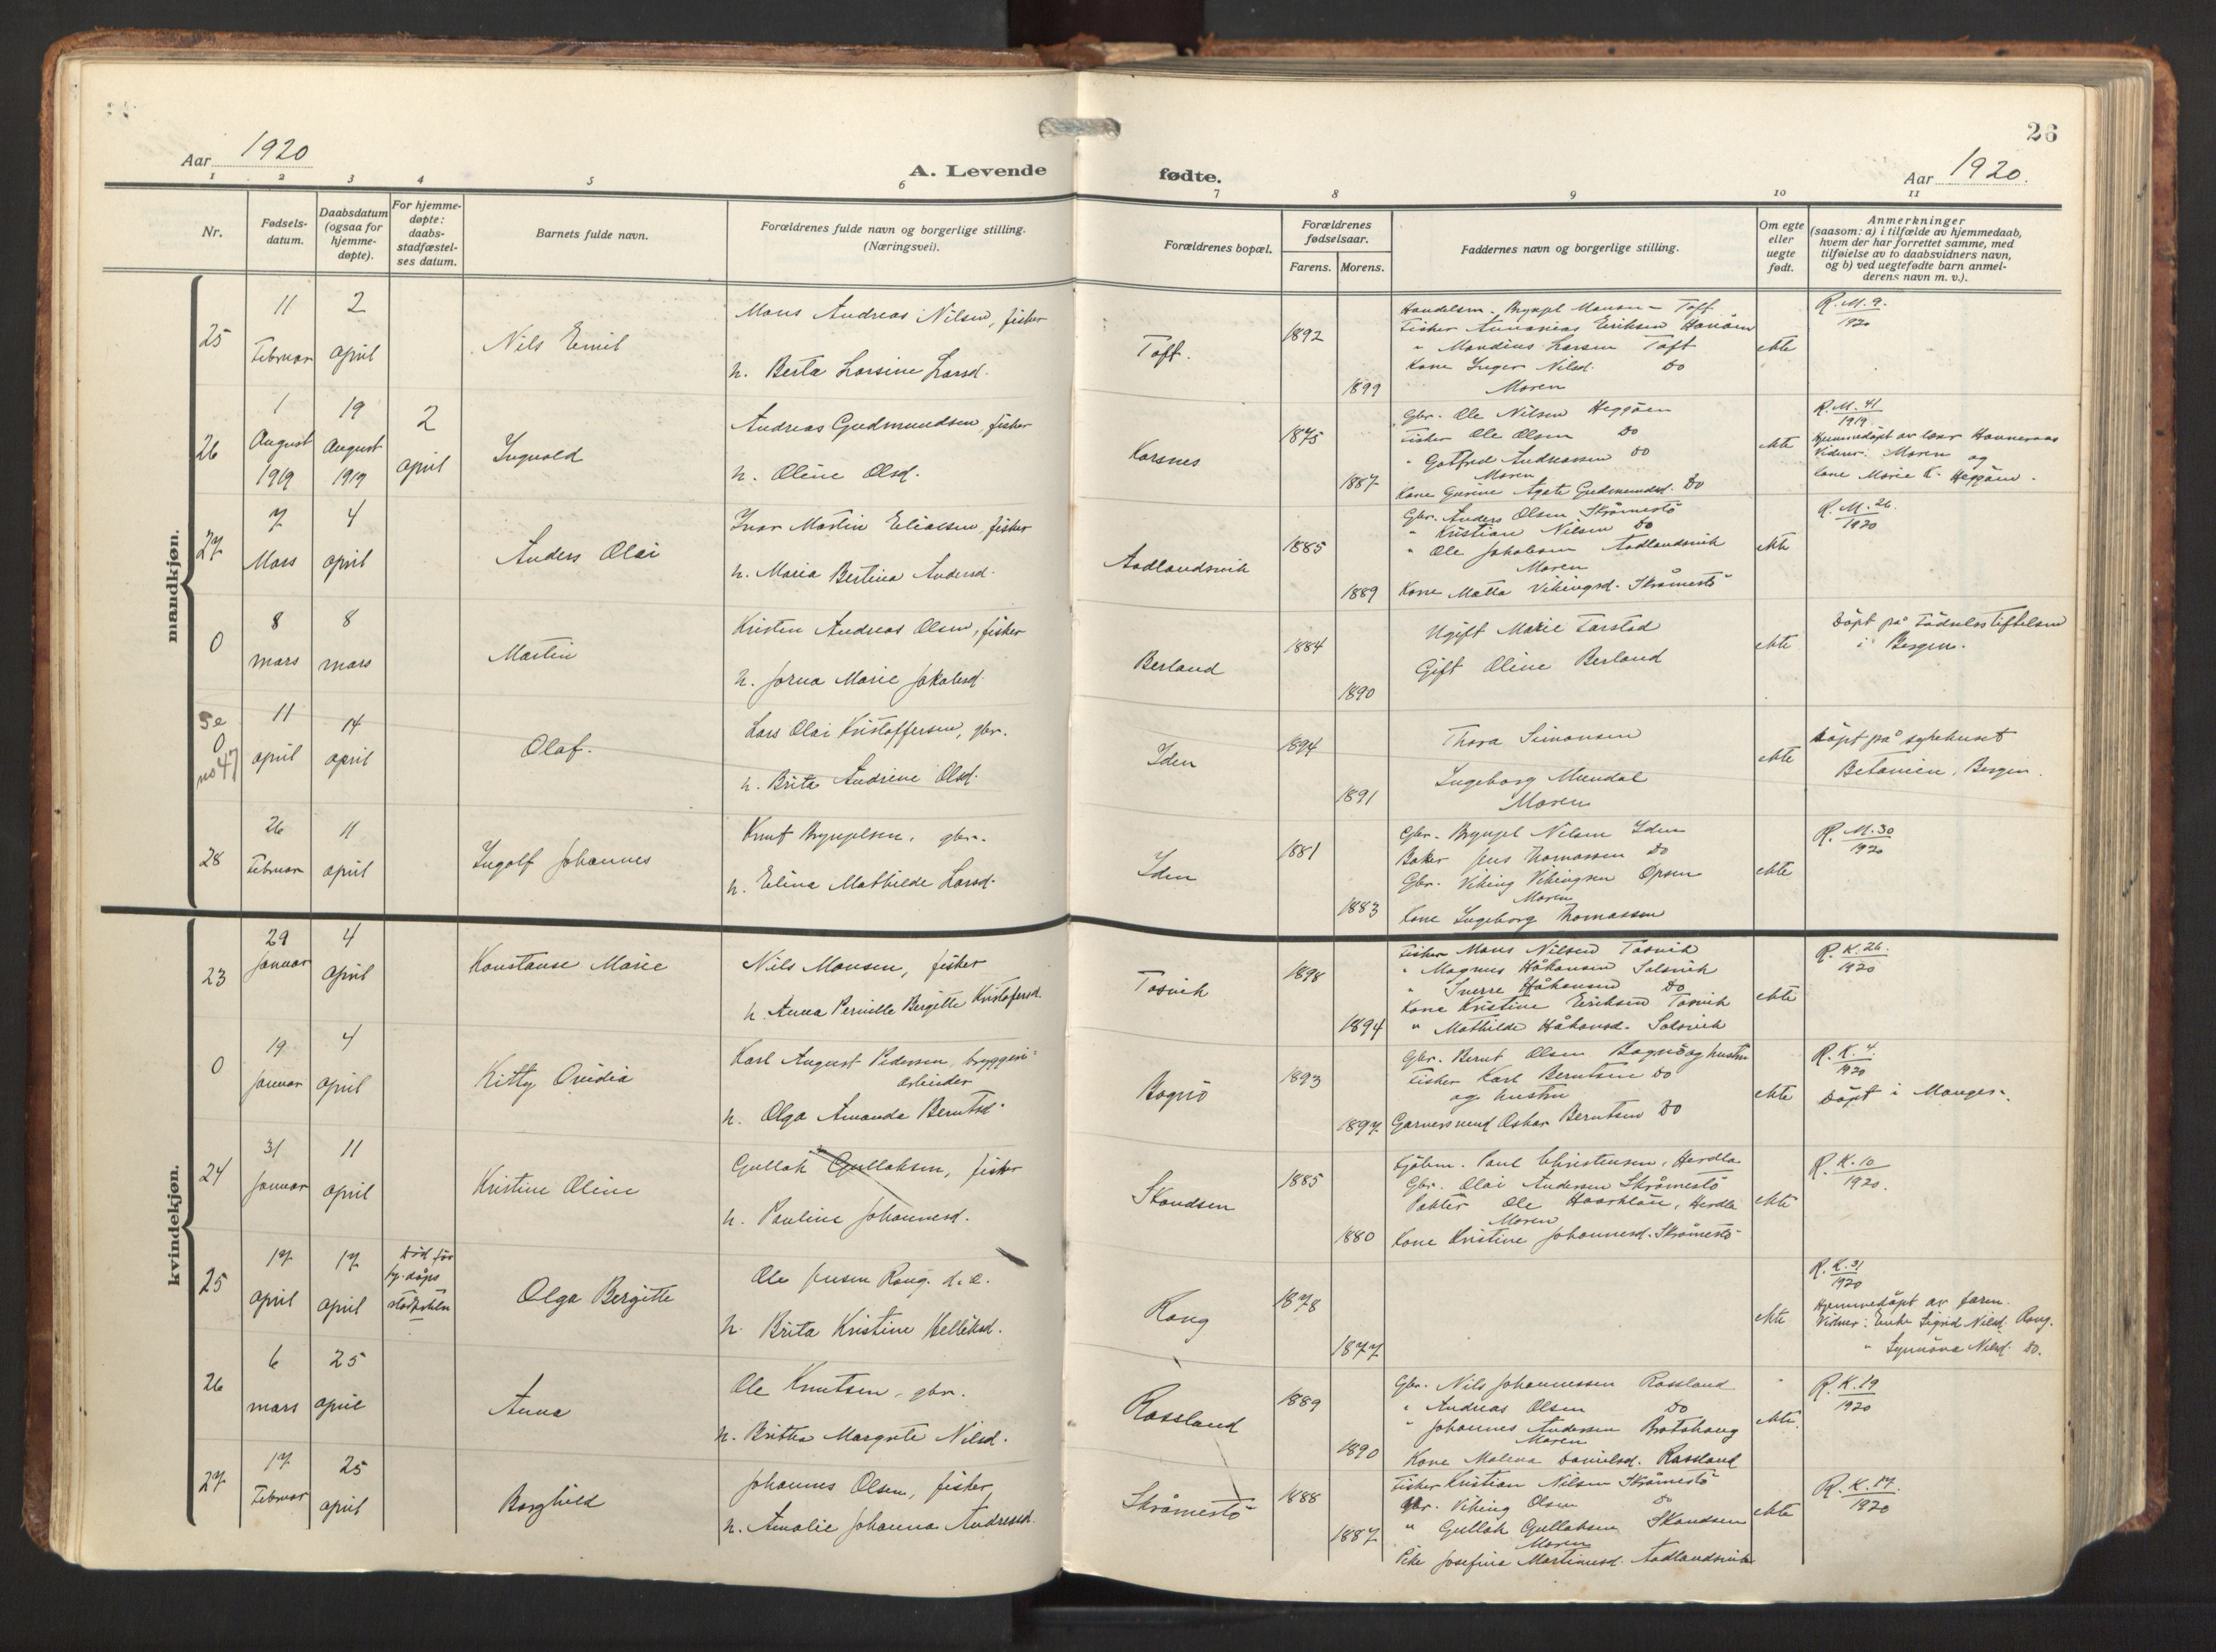 26
Aar 1920
A. Levende fødte.
Aar 1920.
1 2 3 4 5 6 7 8 9 10 11
Nr.
Fødsels-
datum.
Daabsdatum
(ogsaa for
hjemme-
døpte).
For hjemme-
døpte:
daabs-
stadfæstel-
ses datum.
Barnets fulde navn.
Forældrenes fulde navn og borgerlige stilling.
(Næringsvei).
Forældrenes bopæl.
Forældrenes
fødselsaar.
Farens. Morens.
Faddernes navn og borgerlige stilling.
Om egte
eller
uegte
født.
Anmerkninger
(saasom: a) i tilfælde av hjemmedaab,
hvem der har forrettet samme, med
tilføielse av to daabsvidners navn,
og b) ved uegtefødte barn anmel-
derens navn m. v.).
mandkjøn.
25
11
Februar
2
april
Nils Emil
Mons Andreas Nilsen, fisker
h. Berta Larsine Larsd.
Toft.
1892
1899
Handelsm. Brynjel Monsen - Toft
Fisker Annanias Eriksen
" Mandius Larsen Toft
Kone Inger Nilsd. Do
Moren
ekte
R. M. 9.
1920
26
1
August
1919
19
August
1919
2
april
Ingvald
Andreas Gudmundsen, fisker
h. Oline Olsd.
Korsnes
1875
1887
Gbr. Ole Nilsen Heggöen
Fisker Ole Olsen Do
" Gotfred Andreassen Do
Moren
Kone Gurine Agate Gudmundsd. Do
ekte
R. M. 41
1919
Hjemmedöpt av
Vidner: Moren og
Kone Marie K. Heggöen.
27
7
Mars
4
april
Anders Olai
Ivar Martin Eliassen, fisker
h. Maria Bertina Andersd.
Aadlandsvik
1885
1889
Gbr. Anders Olsen Skråmestö
" Kristian Nilsen Do
" Ole Jakobsen Aadlandsvik
Moren
Kone Matta Vikingsd. Skråmestö
ekte
R. M. 26.
1920
0
8
mars
8
mars
Martin
Kristen Andreas Olsen, fisker
h. Jorna Marie Jakobsd.
Berland
1884
1890
Ugift Marie Tarstad
Gift Oline Berland
ekte
Döpt på Födselsstiftelsen
i Bergen.
Se
0
no 47
11
april
14
april
Olaf.
Lars Olai Kristoffersen, gbr.
h. Brita Andrine Olsd.
Iden
1894
1891
Thora Simonsen
Ingeborg Mundal
Moren
ekte
Döpt på sykehuset
Betanien, Bergen.
28
26
Februar
11
april
Ingolf Johannes
Knut Brynjelsen, gbr.
h. Elina Mathilde Larsd.
Iden
1881
1883
Gbr. Brynjel Nilsen Iden
Baker Jens Thomassen Do
Gbr. Viking Vikingsen Opsen
Moren
Kone Ingeborg Thomassen
ekte
R. M. 30
1920
kvindekjøn.
23
29
Januar
4
april
Konstanse Marie
Nils Monsen, fisker
h. Anna Pernille Bergitte Kristofersd.
Tosvik
1898
1894
Fisker Mons Nilsen Tosvik
" Magnus Håkonsen Solsvik
" Sverre Håkonsen Do
Kone Kristine Eriksen Tosvik
" Mathilde Håkonsd. Solsvik
ekte
R. K. 26.
1920
0
19
Januar
4
april
Kitty Ovidia
Karl August Pedersen, bryggeri=
arbeider
h. Olga Amanda Berntsd.
Bognö
1893
1897
Gbr. Bernt Olsen Bognö og hustru
Fisker Karl Berntsen Do
og hustru
Garversvend Oskar Berntsen Do
ekte
R. K. 4.
1920
Döpt i Manger.
24
31
Januar
11
april
Kristine Oline
Gullak Gullaksen, fisker
h. Pauline Johannesd.
Skandsen
1885
1880
Kjöbm. Paul Christensen, Herdla
Gbr. Olai Andersen Skråmestö
Pakter Ole Haarklau, Herdla
Moren
Kone Kristine Johannesd. Skråmestö
ekte
R. K. 10
1920.
25
17
april
17
april
Död för
Olga Bergitte
Ole Jensen Rong.
h. Brita Kristine Helliksd.
Rong
1878
1877
ekte
R. K. 31
1920
Hjemmedöpt av faren.
Vidner: Enke Sigrid Nilsd. Rong.
" Synnöva Nilsd. Do.
26
6
mars
25
april
Anna
Ole Knutsen, gbr.
h. Britha Margrete Nilsd.
Rossland
1889
1890
Gbr. Nils Johannessen Rossland
" Andreas Olsen Do
" Johannes Andersen
Moren
Kone Malena Danielsd. Rossland
ekte.
R. K. 19
1920
27
17
Februar
25
april
Borghild
Johannes Olsen, fisker
h. Amalie Johanna Andreasd.
Skråmestö
1888
1887
Fisker Kristian Nilsen Skråmestö
Gbr. Viking Olsen Do
" Gullak Gullaksen Skandsen
Moren
Pike Josefine Martinusd. Aadlandsvik
ekte
R. K. 17.
1920